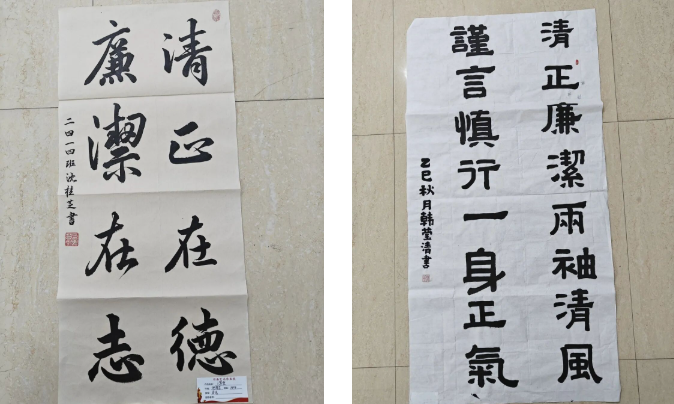 清正在德
廉潔在志
二四一四班沈桂芝書
清正廉潔兩袖清風
謹言慎行一身正氣
乙巳秋月韩莹清書